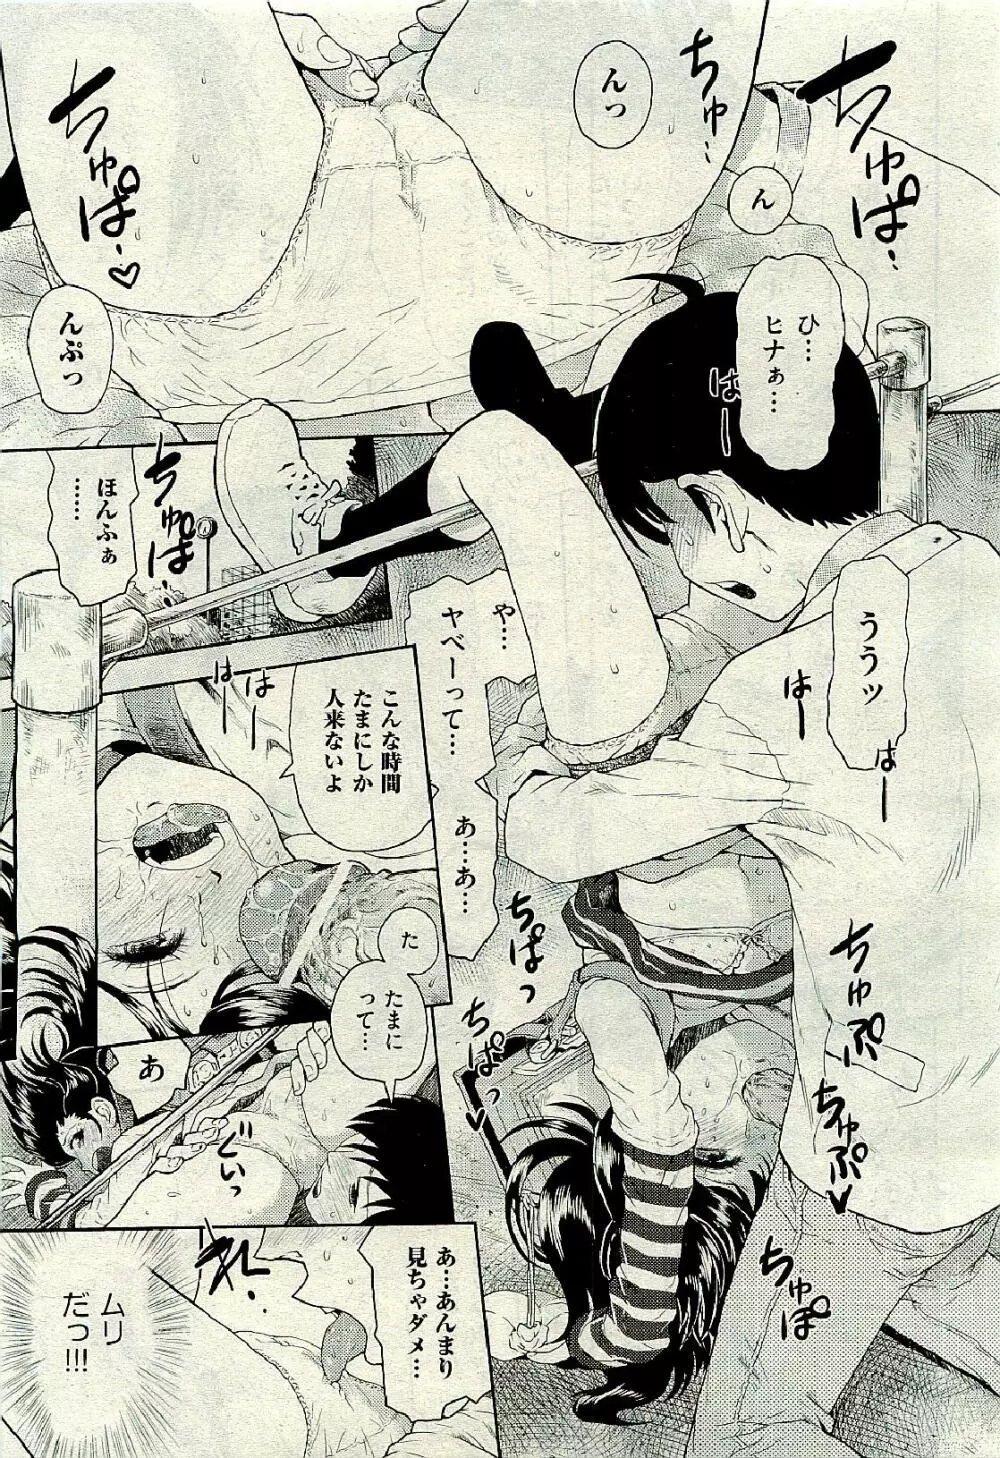 ちゅ…
んっ
ちゅぱ…
ん
ちゅぱ…♡
んぷっ
ひ…
ヒナぁ…
はー
ううッ
はー
はー
や…
ヤベーって…
あ…あ…
ちゅぱ…
ほんふぁ
……
はー
はー
こんな時間
たまにしか
人来ないよ
た
たまに
って…
ちゅぷ
ちゅぷ♥
ちゅぽ
ちぱっ
ちぱっ♥
あ
ぐいっ
あ…あんまり
見ちゃダメ…
ムリ
だっ!!!